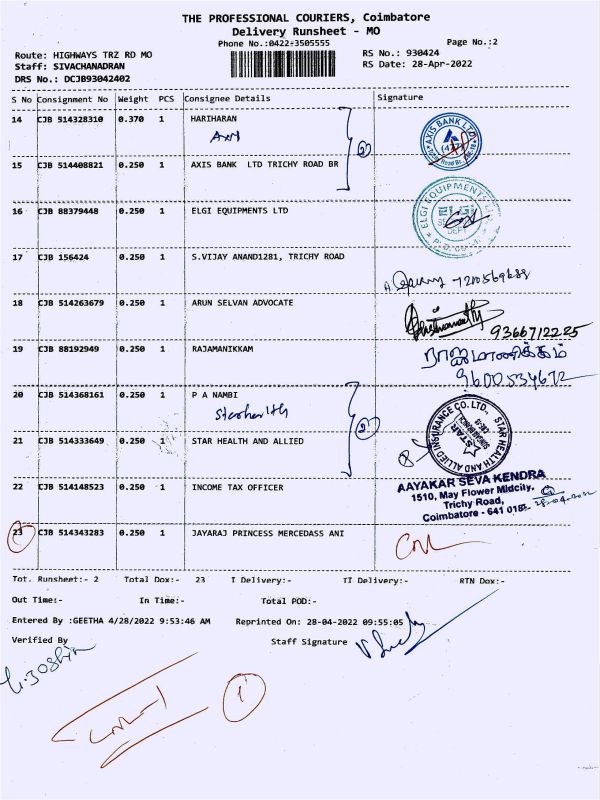 THE PROFESSIONAL COURIERS, Coimbatore
Delivery Runsheet - MO
Phone No.:0422-3505555
Page No.:2
Route: HIGHWAYS TRZ RD MO
RS No.: 930424
Staff: SIVACHANADRAN
RS Date: 28-Apr-2022
DRS No.: DCJB93042402
S No Consignment No Weight PCS Consignee Details Signature
14 CJB 514328310 0.370 1 HARIHARAN
Axis
AXIS BANK LTD
15 CJB 514408821 0.250 1 AXIS BANK LTD TRICHY ROAD BR
16 CJB 88379448 0.250 1 ELGI EQUIPMENTS LTD
ELGI EQUIPMENTS
ELGi
17 CJB 156424 0.250 1 S.VIJAY ANAND1281, TRICHY ROAD
18 CJB 514263679 0.250 1 ARUN SELVAN ADVOCATE
9366712225
19 CJB 88192949 0.250 1 RAJAMANIKKAM
ராஜமாணிக்கம்
9600534672
20 CJB 514368161 0.250 1 P A NAMBI
Starhealth
STAR HEALTH AND ALLIED INSURANCE CO. LTD.,
STAR
21 CJB 514333649 0.250 1 STAR HEALTH AND ALLIED
22 CJB 514148523 0.250 1 INCOME TAX OFFICER
AAYAKAR SEVA KENDRA
1510, May Flower Midcity,
Trichy Road,
Coimbatore - 641 018.
28-04-2022
23 CJB 514343283 0.250 1 JAYARAJ PRINCESS MERCEDASS ANI
Tot. Runsheet:- 2 Total Dox:- 23 I Delivery:- II Delivery:- RTN Dox:-
Out Time:- In Time:- Total POD:-
Entered By :GEETHA 4/28/2022 9:53:46 AM Reprinted On: 28-04-2022 09:55:05
Verified By Staff Signature
1